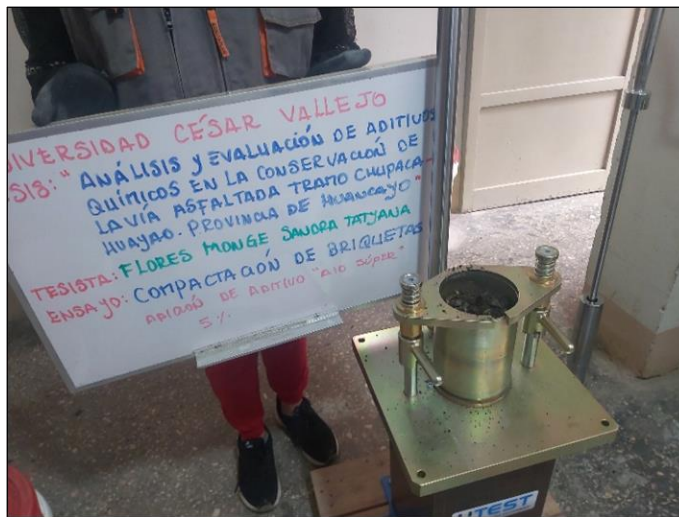 IVERSIDAD CÉSAR VALLEJO
SIS: "ANÁLISIS Y EVALUACIÓN DE ADITIVOS
QUÍMICOS EN LA CONSERVACIÓN DE
LA VÍA ASFALTADA TRAMO CHUPACA-
HUAYAO. PROVINCIA DE HUANCAYO"
TESISTA: FLORES MONGE SANDRA TATYANA
ENSAYO: COMPACTACIÓN DE BRIQUETAS
ADICIÓN DE ADITIVO "AID SÚPER"
5%
UTEST